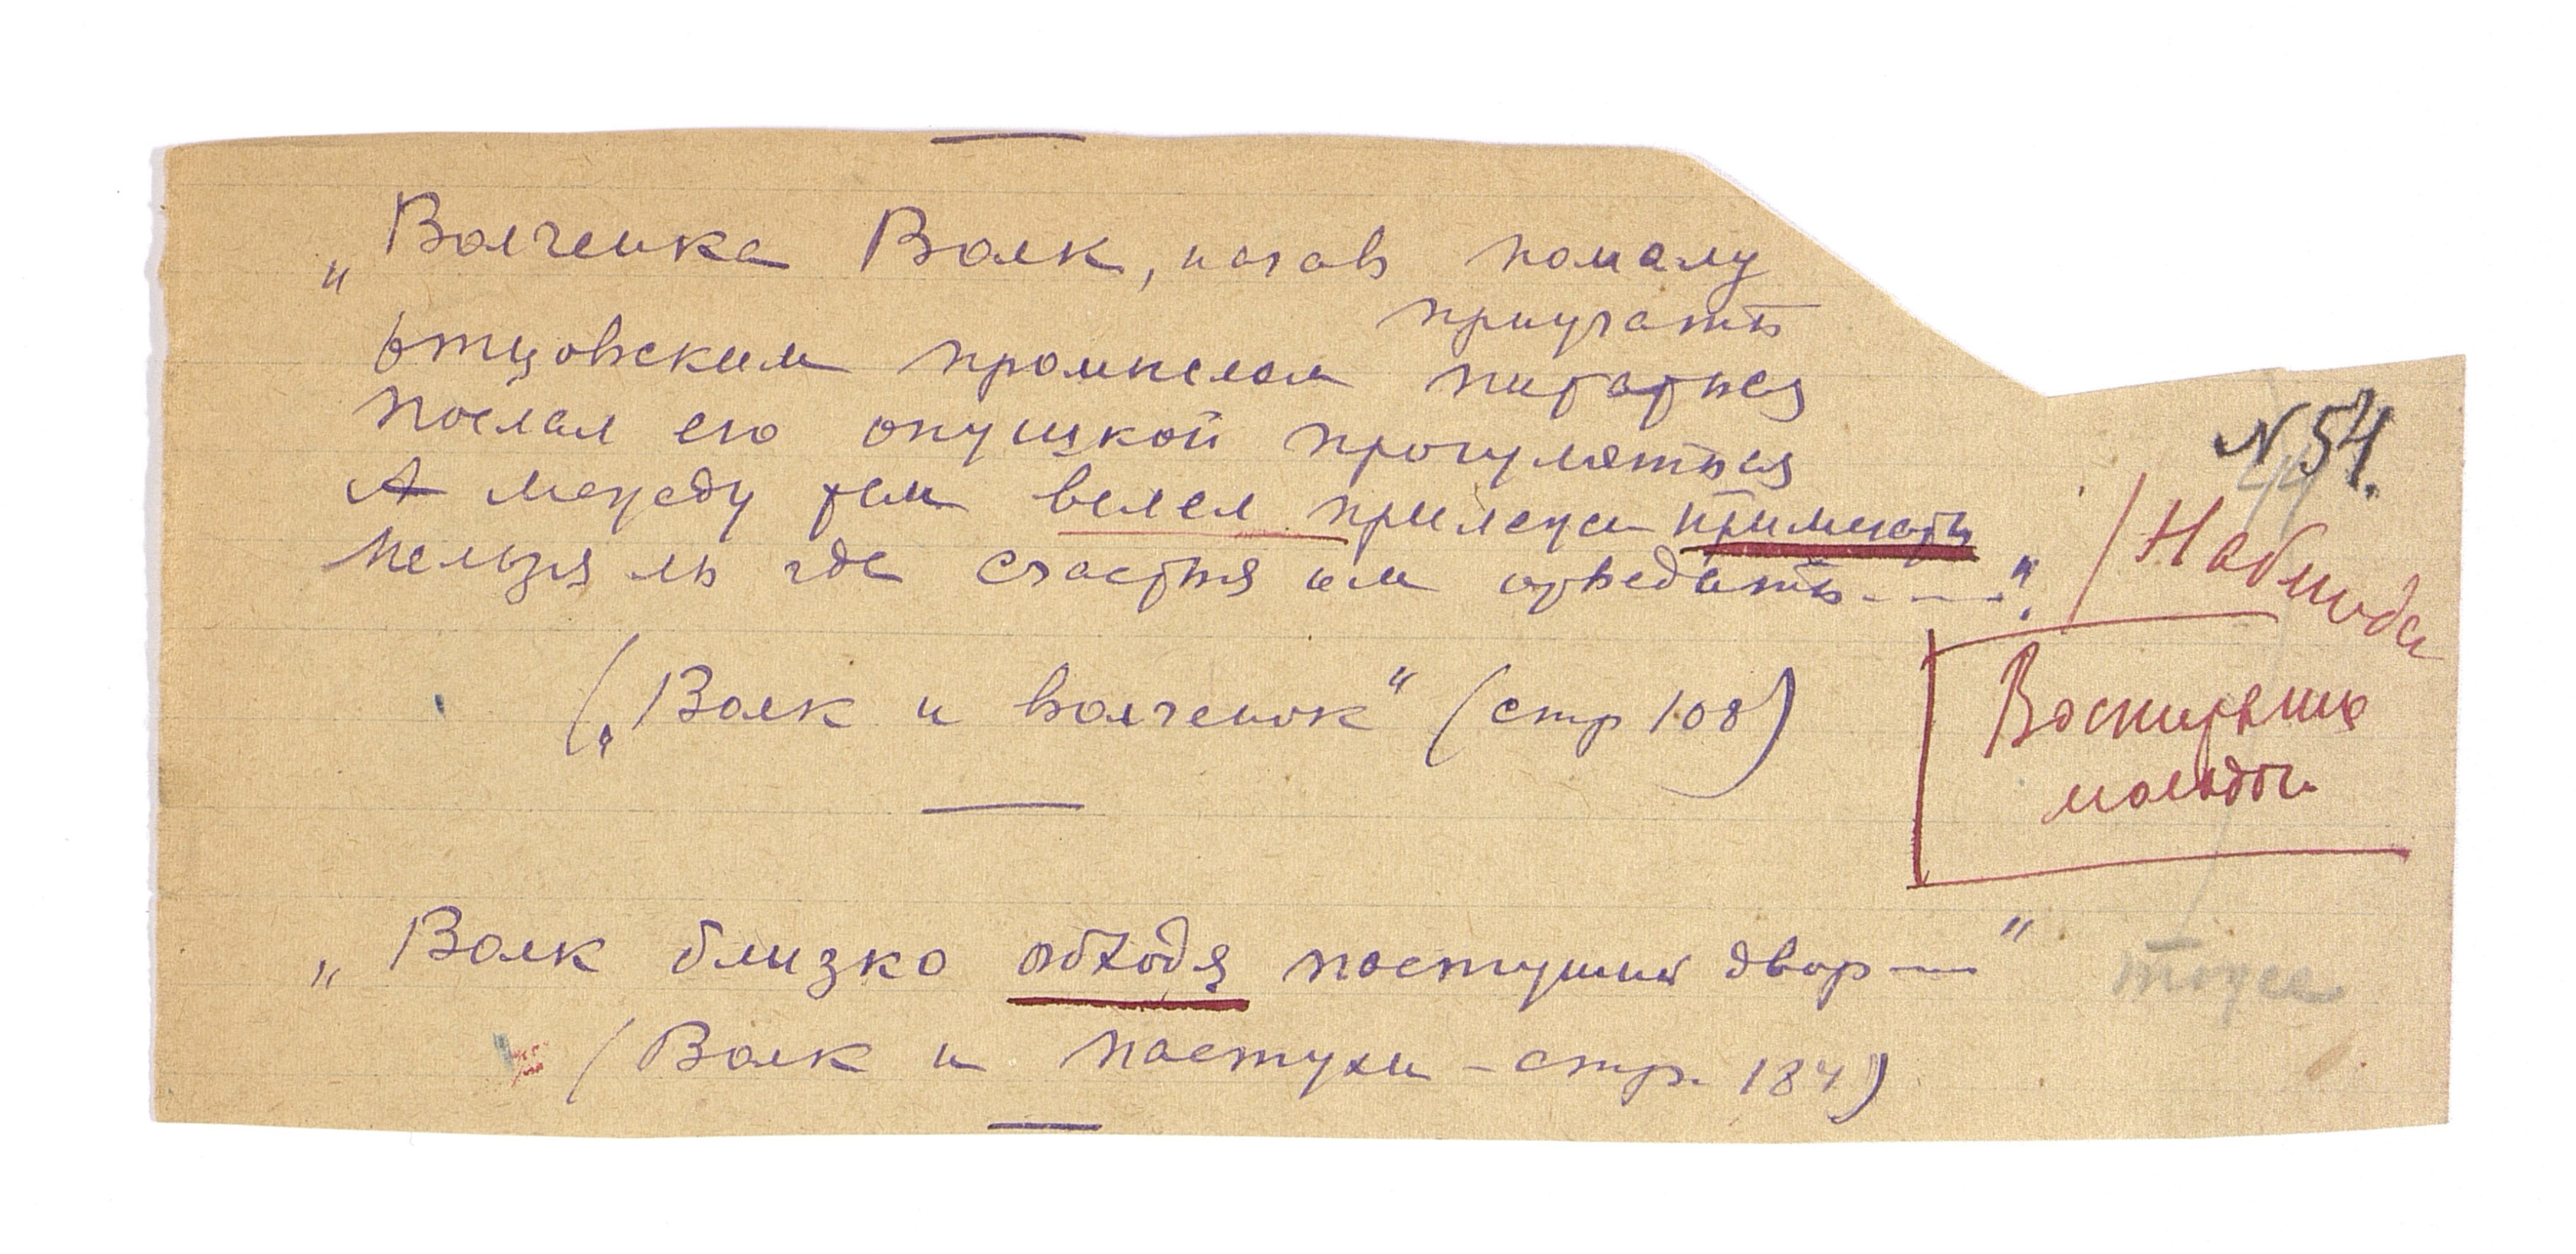 „Волченка Волк, начав помалу
приучать
отцовским промыслом питаться
Послал его опушкой прогуляться
А между тем велел прилежней примечать
Нельзя ль где счастья им отведать----“.
N 54.
/Наблюда
(„Волк и волченок“ (стр 108)
Воспитание
молодого
„Волк близко обходя пастуший двор---“
тоже
(Волк и пастухи - стр. 184)